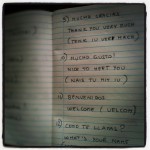 8) MUCHAS GRACIAS
THANK YOU VERY MUCH
9) MUCHO GUSTO!
NICE TO MEET YOU
(NAIS TU MIT IU)
10) BIENVENIDO
WELCOME / UELCOM)
11) COMO TE LLAMAS?
WHAT'S YOUR NAME